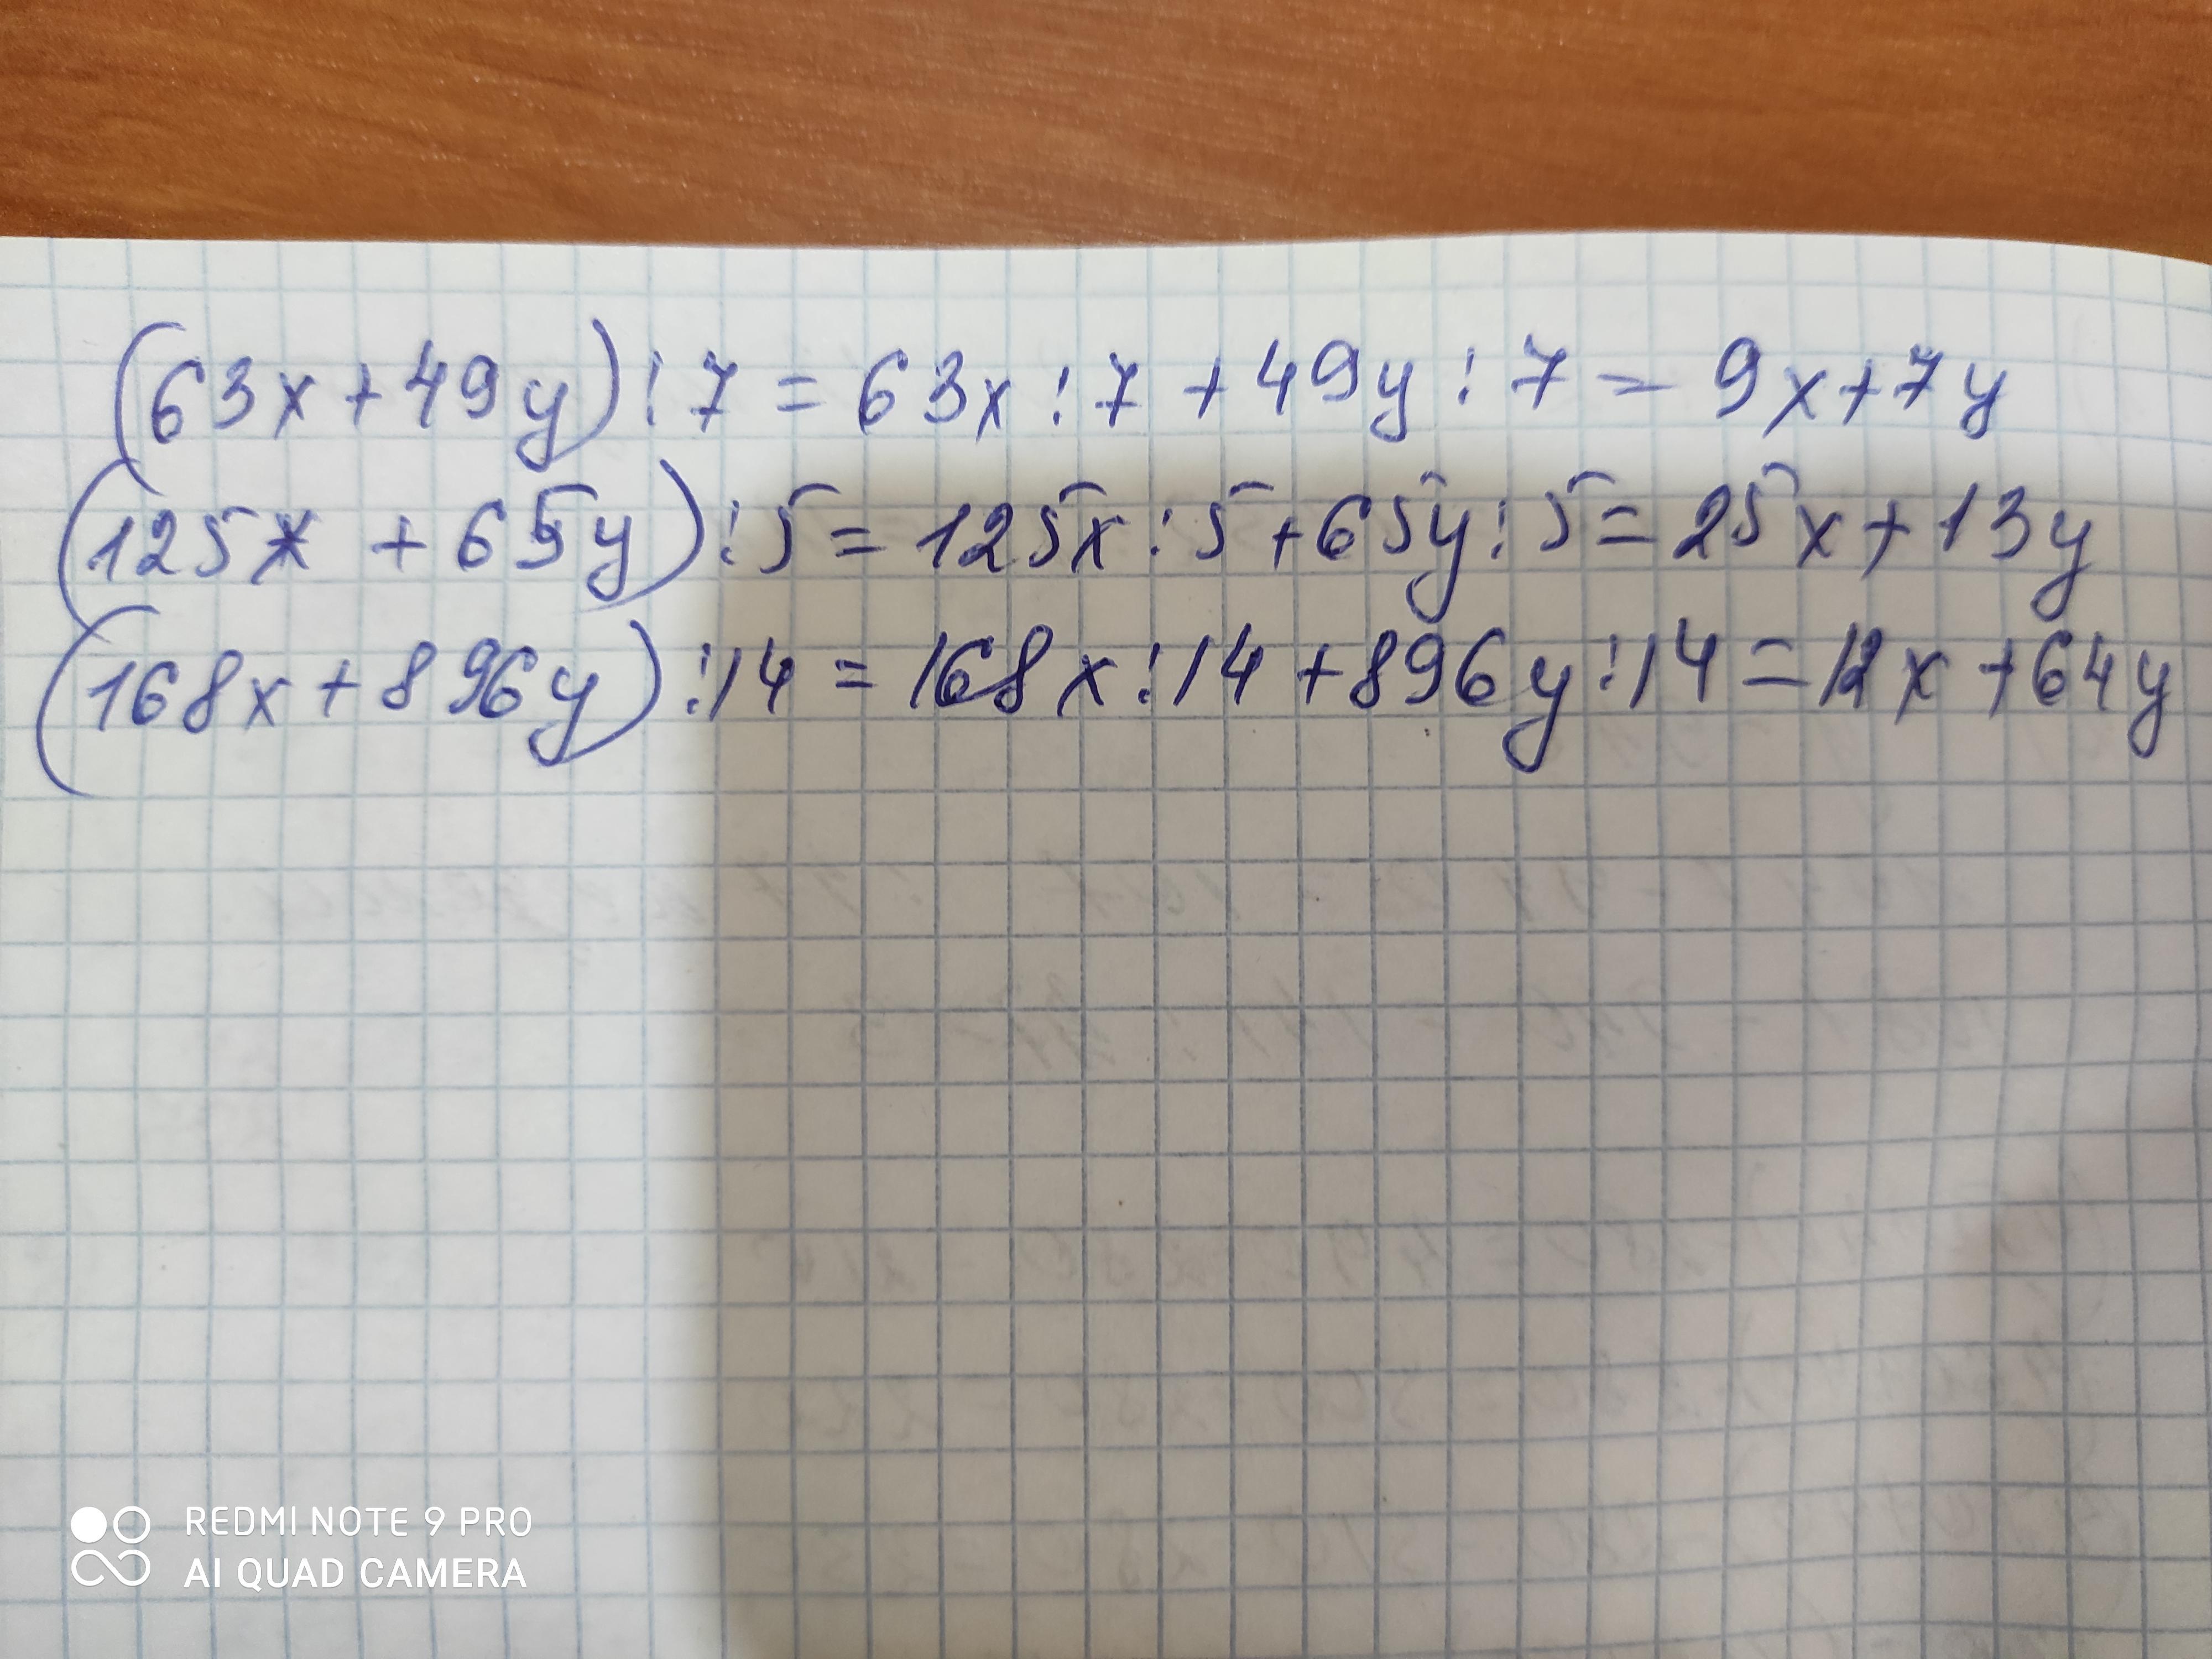 (63x+49y):7=63x:7+49y:7=9x+7y
(125x+65y):5=125x:5+65y:5=25x+13y
(168x+896y):14=168x:14+896y:14=12x+64y
REDMI NOTE 9 PRO
AI QUAD CAMERA